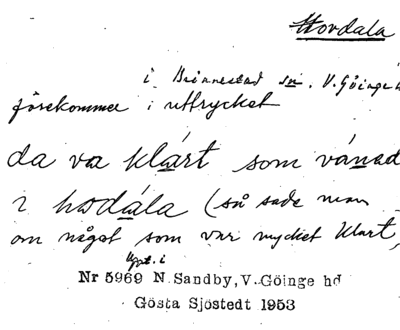 Hovdala
i Brönnestad sn. V. Göinge h
förekommer i uttrycket
da va klárt som vánad
i hodála (så sade man
om något som var mycket klart,
Uppt. i
Nr 5969 N. Sandby, V. Göinge hd
Gösta Sjöstedt 1953